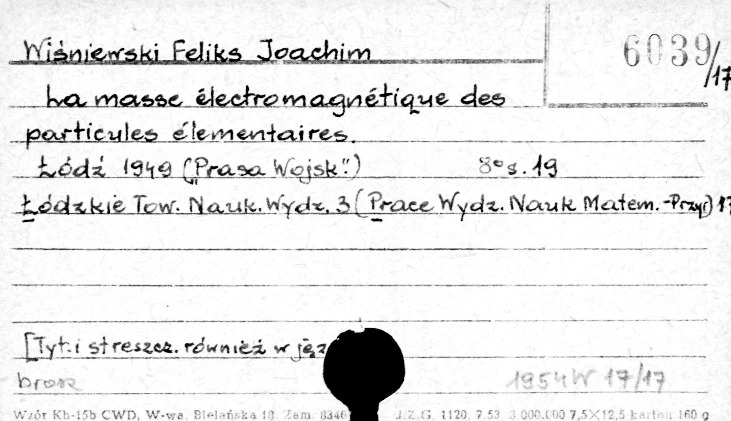 Wiśniewski Feliks Joachim
6039/17
La masse électromagnétique des
particules élementaires.
Łódź 1949 („Prasa Wojsk.") 8° s. 19
Łódzkie Tow. Nauk. Wydz. 3 (Prace Wydz. Nauk Matem.-Przyr) 17
[Tyt. i streszcz. również w jęz
brosz 1954 W 17/17
Wzór Kb-15b CWD, W-wa, Bielańska 18. Zam. 8346 J.Z.G. 1120. 7.53 3 000.000 7,5×12,5 karton 160 g